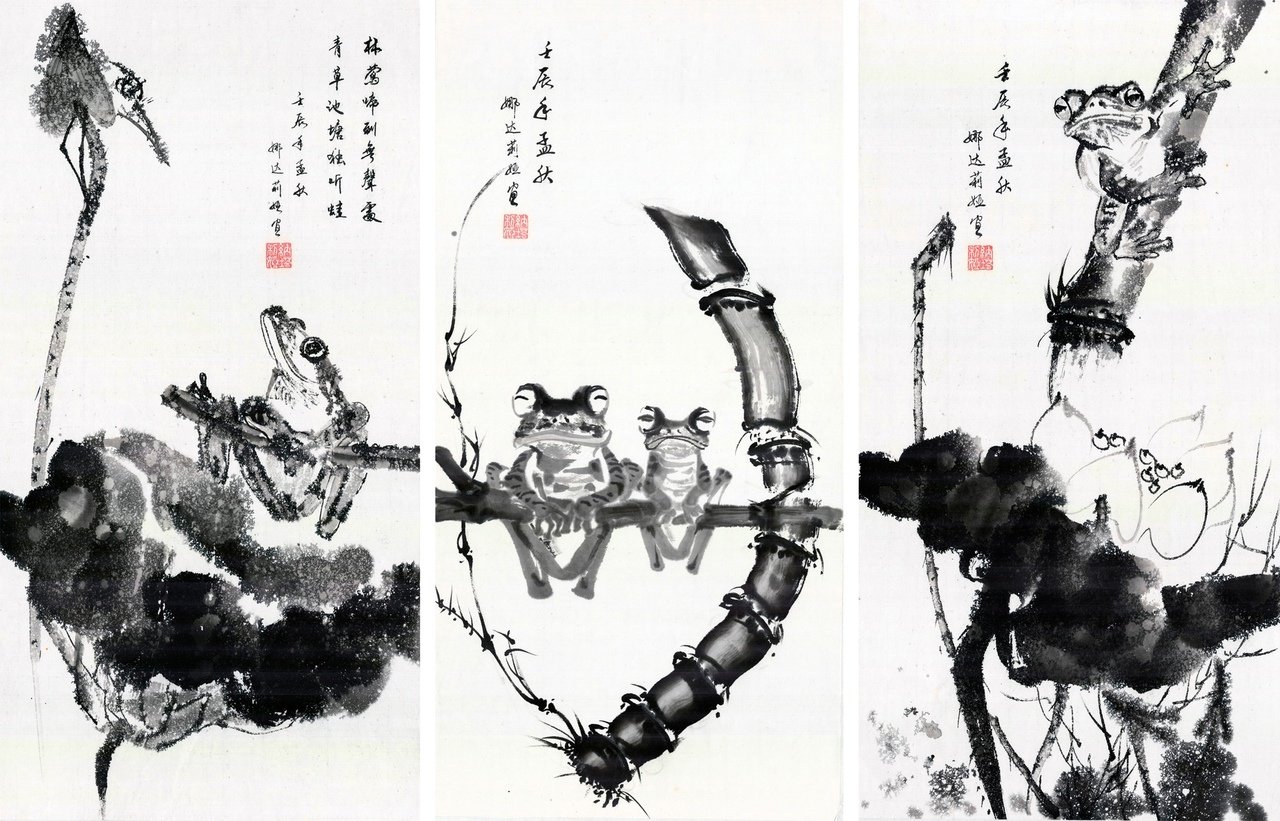 林莺啼到無聲處
青草池塘独听蛙
壬辰年孟秋
娜达莉娅
壬辰年孟秋
娜达莉娅
壬辰年孟秋
娜达莉娅